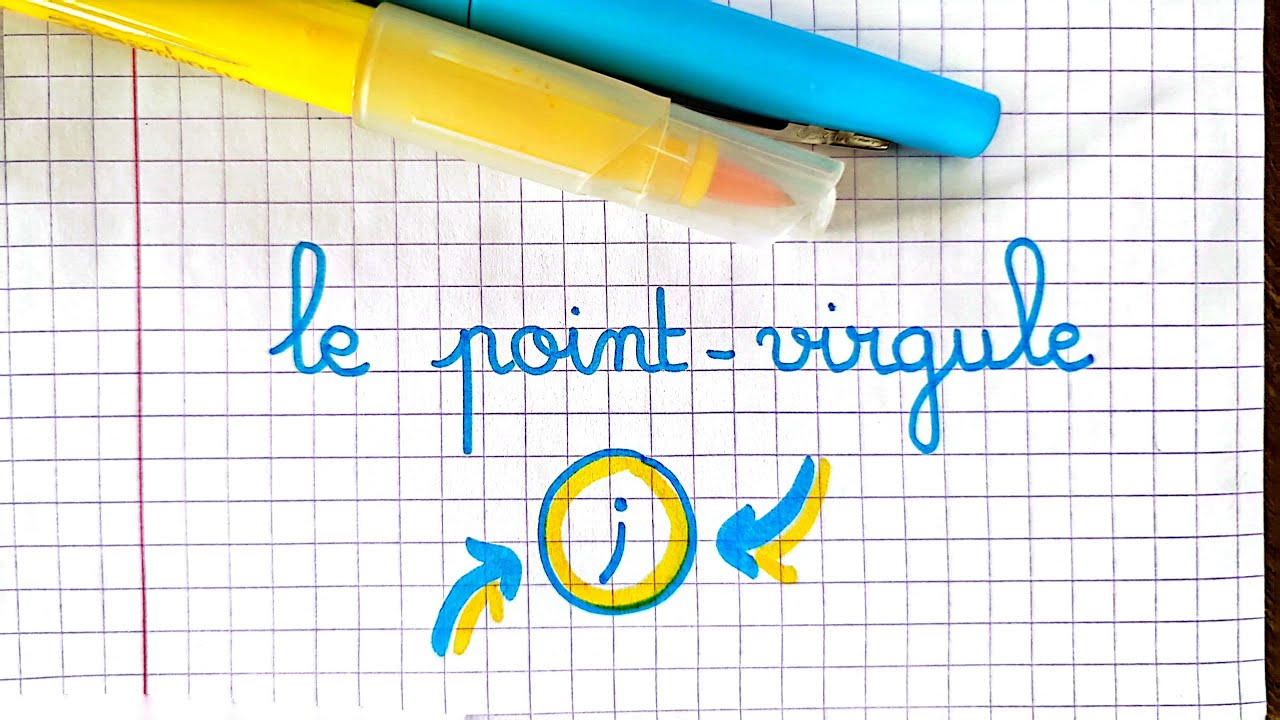 le point-virgule
;